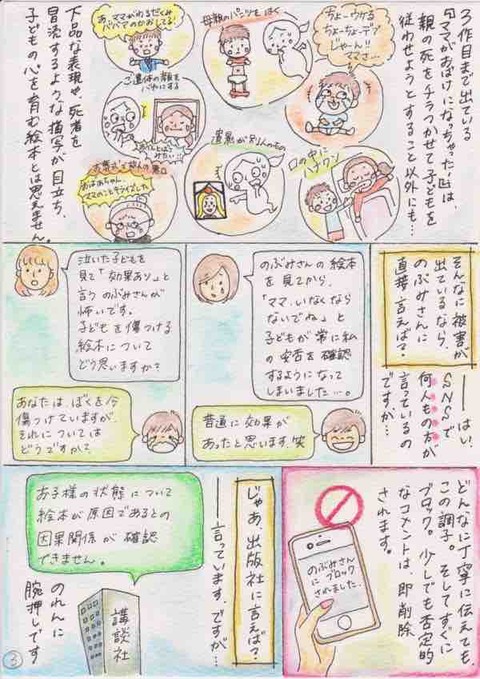 3作目まで出ている
「ママがおばけになっちゃった!」は、
親の死をチラつかせて子どもを
従わせようとすること以外にも…
ちょーウケる
ちょーちょーデブ
じゃーん!!
ママさ…
母親のパンツをはく
口の中に
ハナクソ
遺影が別人のもの
ご遺体の顔を
バカにする
おばあちゃん、
ママのことキライでした
下品な表現や、死者を
冒涜するような描写が目立ち、
子どもの心を育む絵本とは思えません。
そんなに被害が
出ているなら、
のぶみさんに
直接言えば?
――はい、
SNSで
何人もの方が
言っているの
ですが…
のぶみさんの絵本
を見てから、
「ママ、いなくなら
ないでね」と
子どもが常に私
の安否を確認
するようになって
しまいました…。
普通に効果が
あったと思います。笑
泣いた子どもを
見て「効果あり」と
言うのぶみさんが
怖いです。
子どもを傷つける
絵本について
どう思いますか?
あなたは、ぼくを今
傷つけていますが、
それについては
どうですか?
どんなに丁寧に伝えても、
この調子。そしてすぐに
ブロック。少しでも否定的
なコメントは、即削除
されます。
のぶみさん
に ブロック
されました
じゃあ、出版社に言えば?
――言っています。ですが…
お子様の状態について
絵本が原因であるとの
因果関係が確認
できません。
講談社
のれんに
腕押しです
3